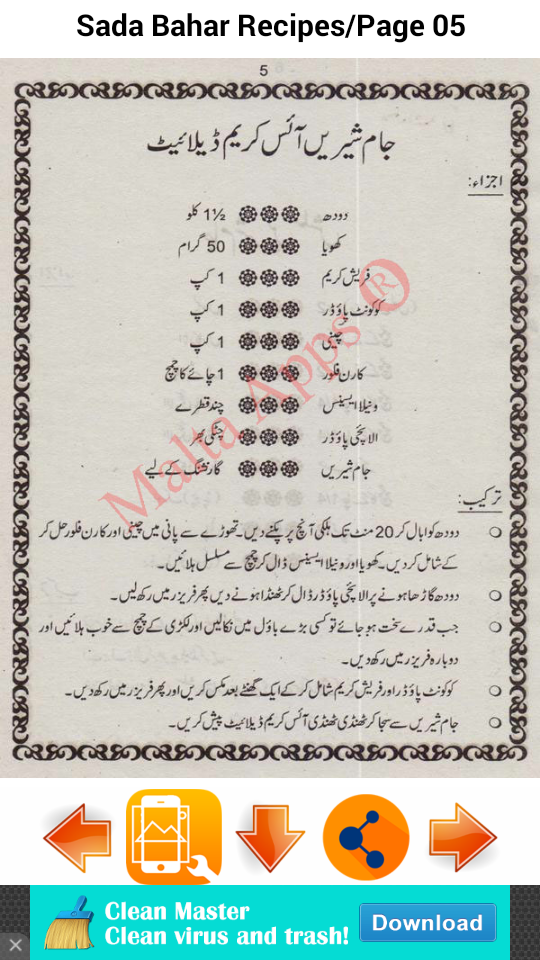 Sada Bahar Recipes/Page 05
5
جام شیریں آئس کریم ڈیلائیٹ
اجزاء:
دودھ 1½ کلو
کھویا 50 گرام
فریش کریم 1 کپ
کوکونٹ پاؤڈر 1 کپ
چینی 1 کپ
کارن فلور 1 چائے کا چمچ
ونیلا ایسینس چند قطرے
الائچی پاؤڈر چٹکی بھر
جام شیریں گارنشنگ کے لیے
Malta Apps ®
ترکیب:
دودھ کو ابال کر 20 منٹ تک ہلکی آنچ پر پکنے دیں۔ تھوڑے سے پانی میں چینی اور کارن فلور حل کر
کے شامل کر دیں۔ کھویا اور ونیلا ایسینس ڈال کر چمچ سے مسلسل ہلائیں۔
دودھ گاڑھا ہونے پر الائچی پاؤڈر ڈال کر ٹھنڈا ہونے دیں پھر فریزر میں رکھ لیں۔
جب قدرے سخت ہو جائے تو کسی بڑے باؤل میں نکالیں اور لکڑی کے چمچ سے خوب ہلائیں اور
دوبارہ فریزر میں رکھ دیں۔
کوکونٹ پاؤڈر اور فریش کریم شامل کر کے ایک گھنٹے بعد مکس کریں اور پھر فریزر میں رکھ دیں۔
جام شیریں سے سجا کر ٹھنڈی ٹھنڈی آئس کریم ڈیلائیٹ پیش کریں۔
Clean Master
Clean virus and trash!
Download